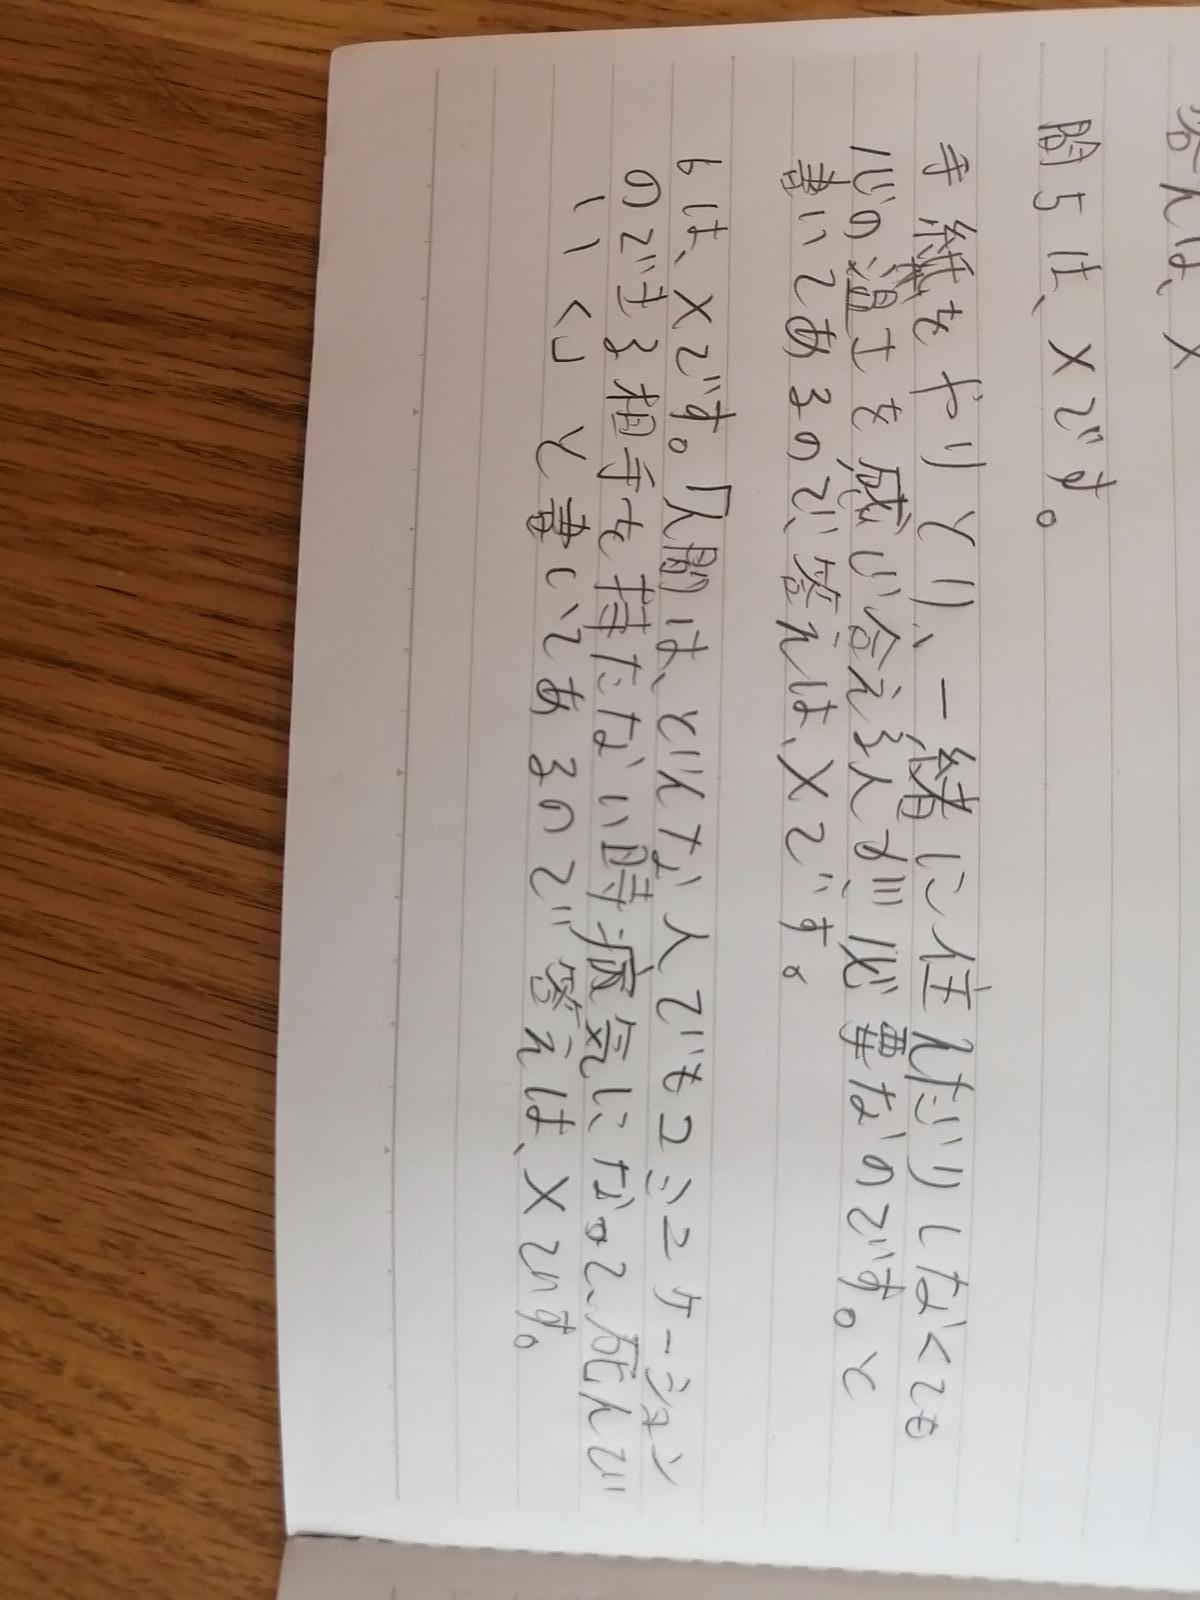 答えは、X
問5は、Xです。
手紙をやりとり、一緒に住んだりしなくても
心の温士を感じ合える人が必要なのです。と
書いてあるので、答えは、Xです。
6は、Xです。「人間は、どんな人でもコミュニケーション
のできる相手を持たない時病気になって死んで
いく」と書いてあるので答えは、Xです。